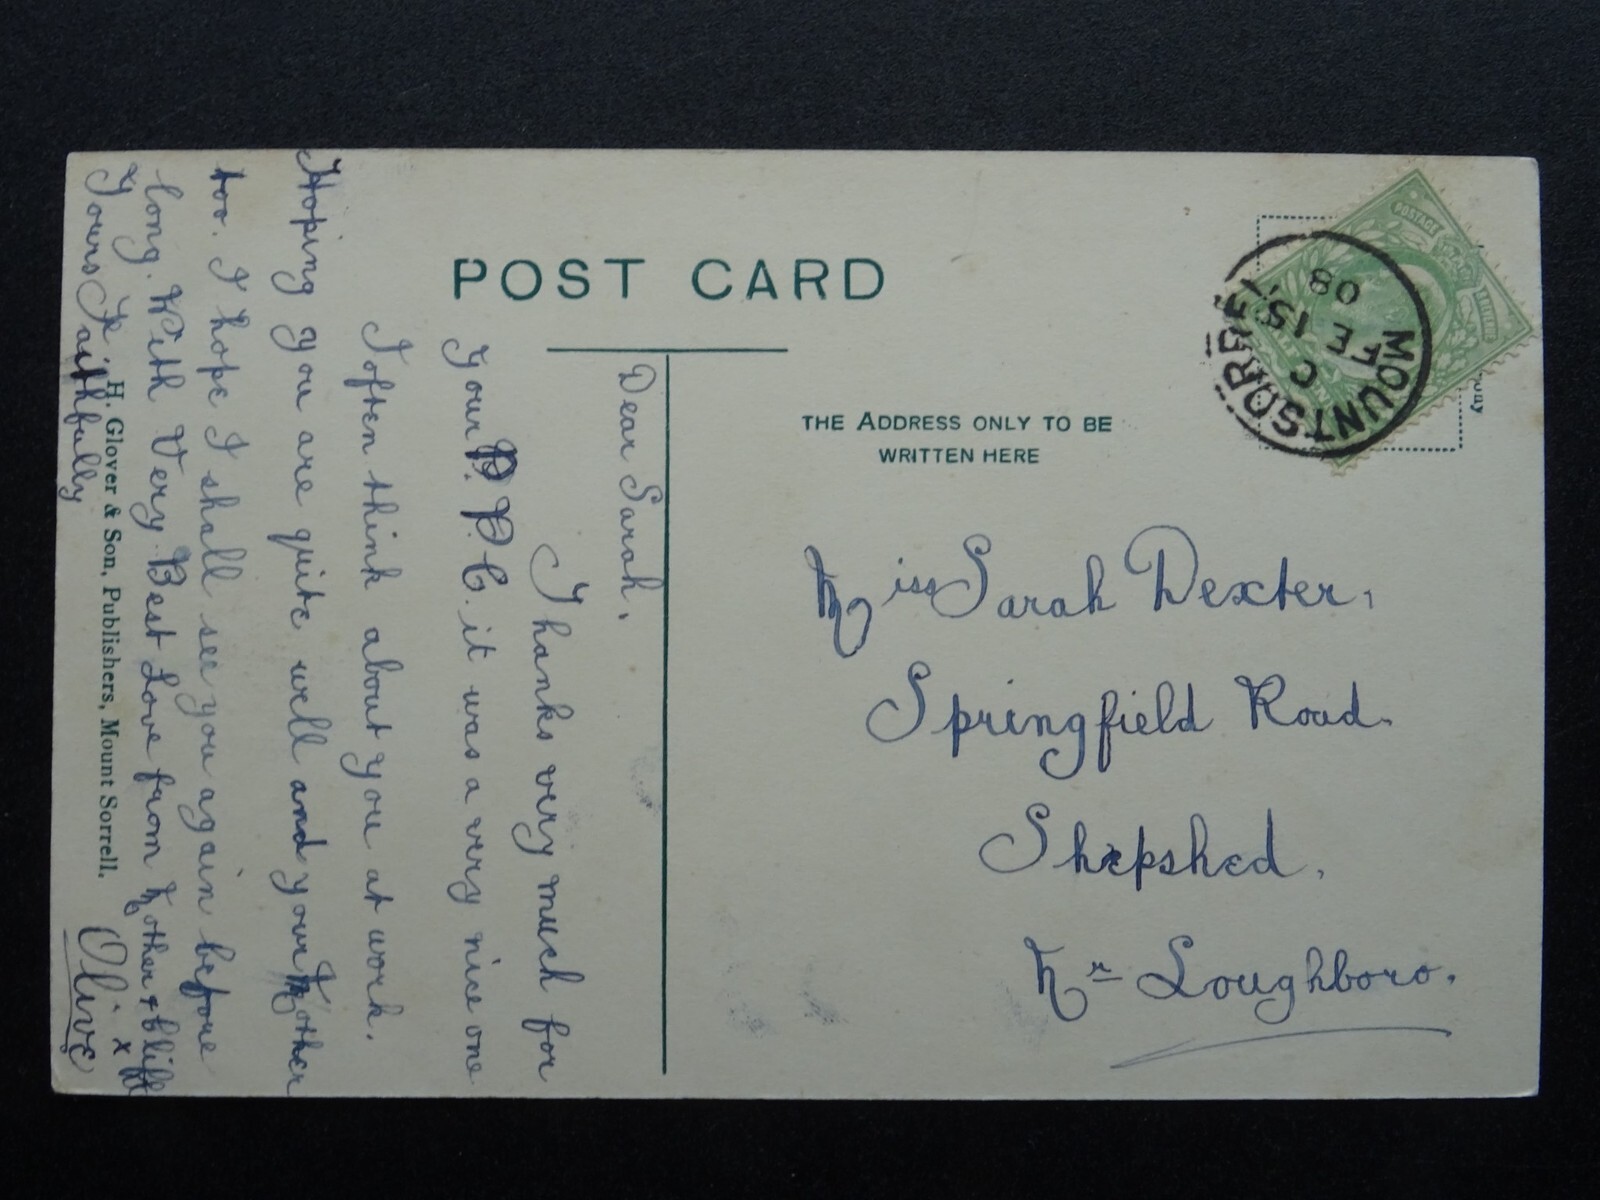 POST CARD
THE ADDRESS ONLY TO BE
WRITTEN HERE
MOUNTSORREL
C
FE 15
08
POSTAGE
Dear Sarah,
Thanks very much for
your P.P.C. it was a very nice one
I often think about you at work.
Hoping you are quite well and your Mother
too. I hope I shall see you again before
long. With Very Best Love from Mother & Cliff
Yours Faithfully
Olive
x
H. Glover & Son, Publishers, Mount Sorrell.
Miss Sarah Dexter,
Springfield Road.
Shepshed.
Nr Loughboro.